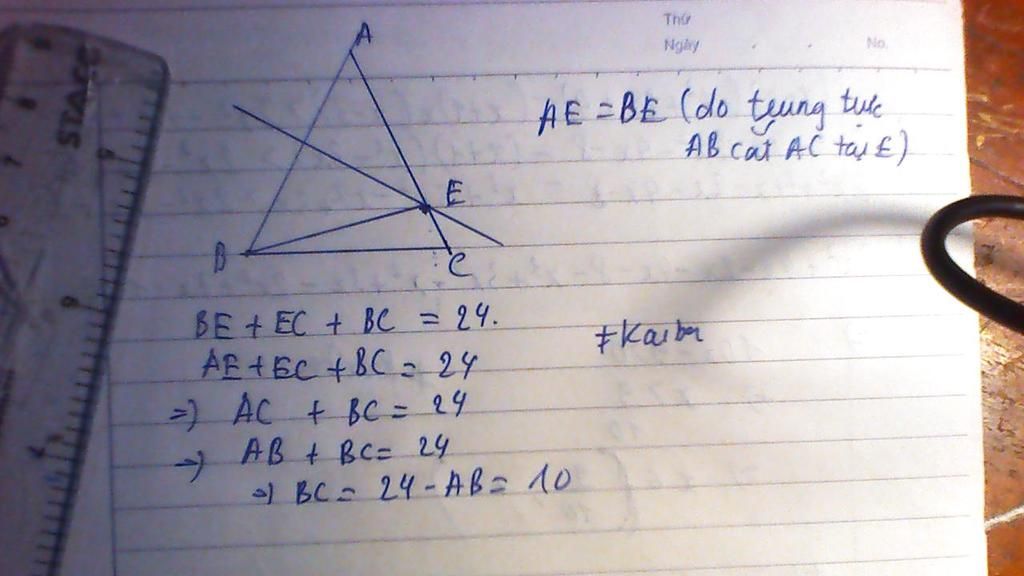 Thứ
Ngày No.
A
AE = BE (do trung trực
AB cắt AC tại E)
E
B
C
BE + EC + BC = 24.
AE + EC + BC = 24
=) AC + BC = 24
=) AB + BC = 24
=) BC = 24 - AB = 10